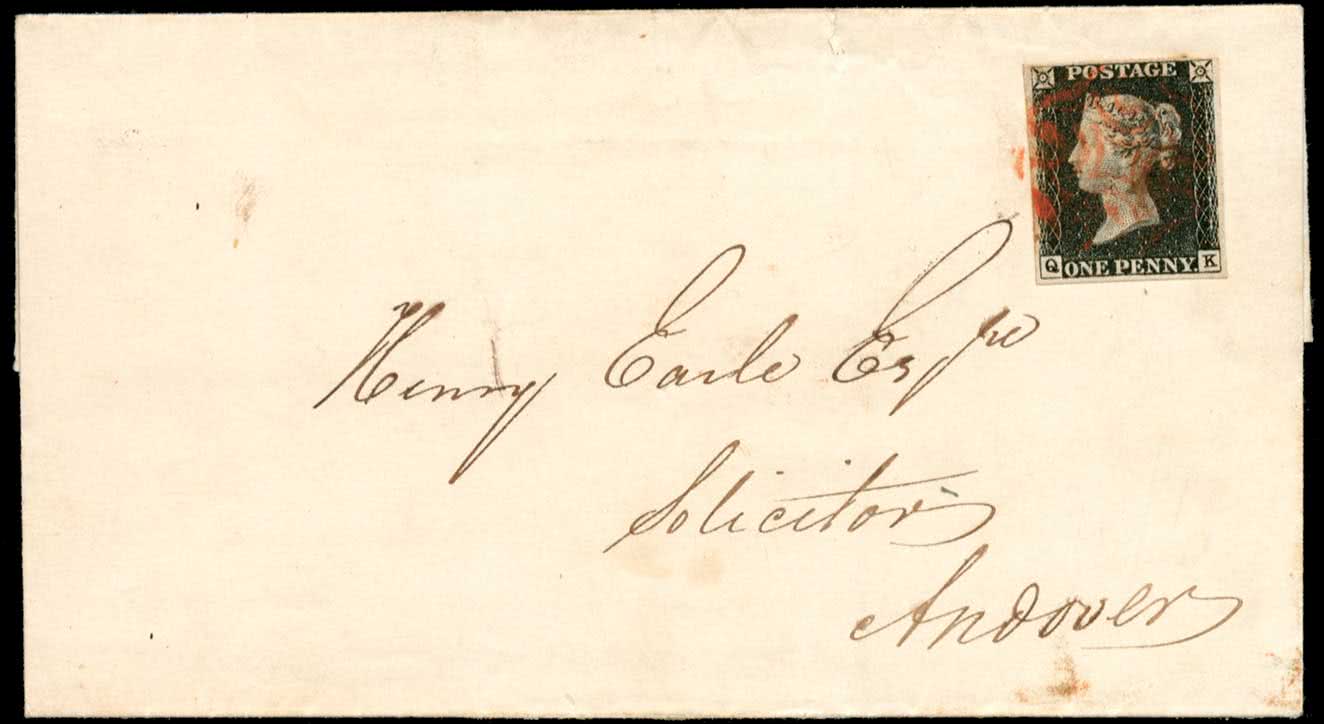 POSTAGE
Q ONE PENNY. K
Henry Earle Esqre
Solicitor
Andover